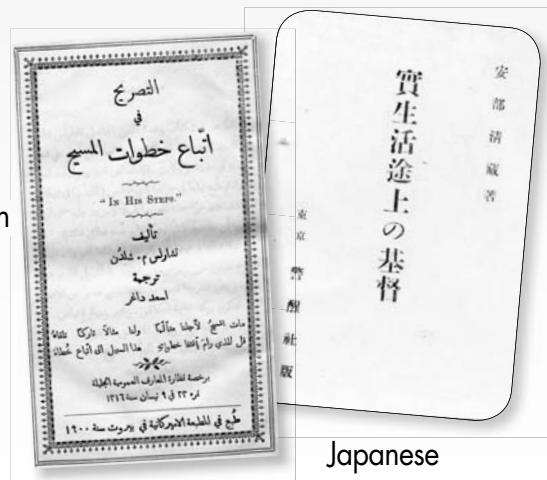 التصريح
في
اتّباع خطوات المسيح
"IN HIS STEPS."
تأليف
تشارلس م. شلدُن
ترجمة
اسعد داغر
مات المسيحُ لأجلنا متألّمًا ولنا مثالًا تاركًا تلقاهُ
قل للذي رام اقتفا خطواتهِ هذا السبيل الى اتباع خطاهُ
برخصة نظارة المعارف العمومية الجليلة
نمره ٢٣ في ٩ نيسان سنة ١٣١٦
طُبع في المطبعة الاميركانية في بيروت سنة ١٩٠٠
安部清蔵著
實生活途上の基督
東京 警醒社版
Japanese